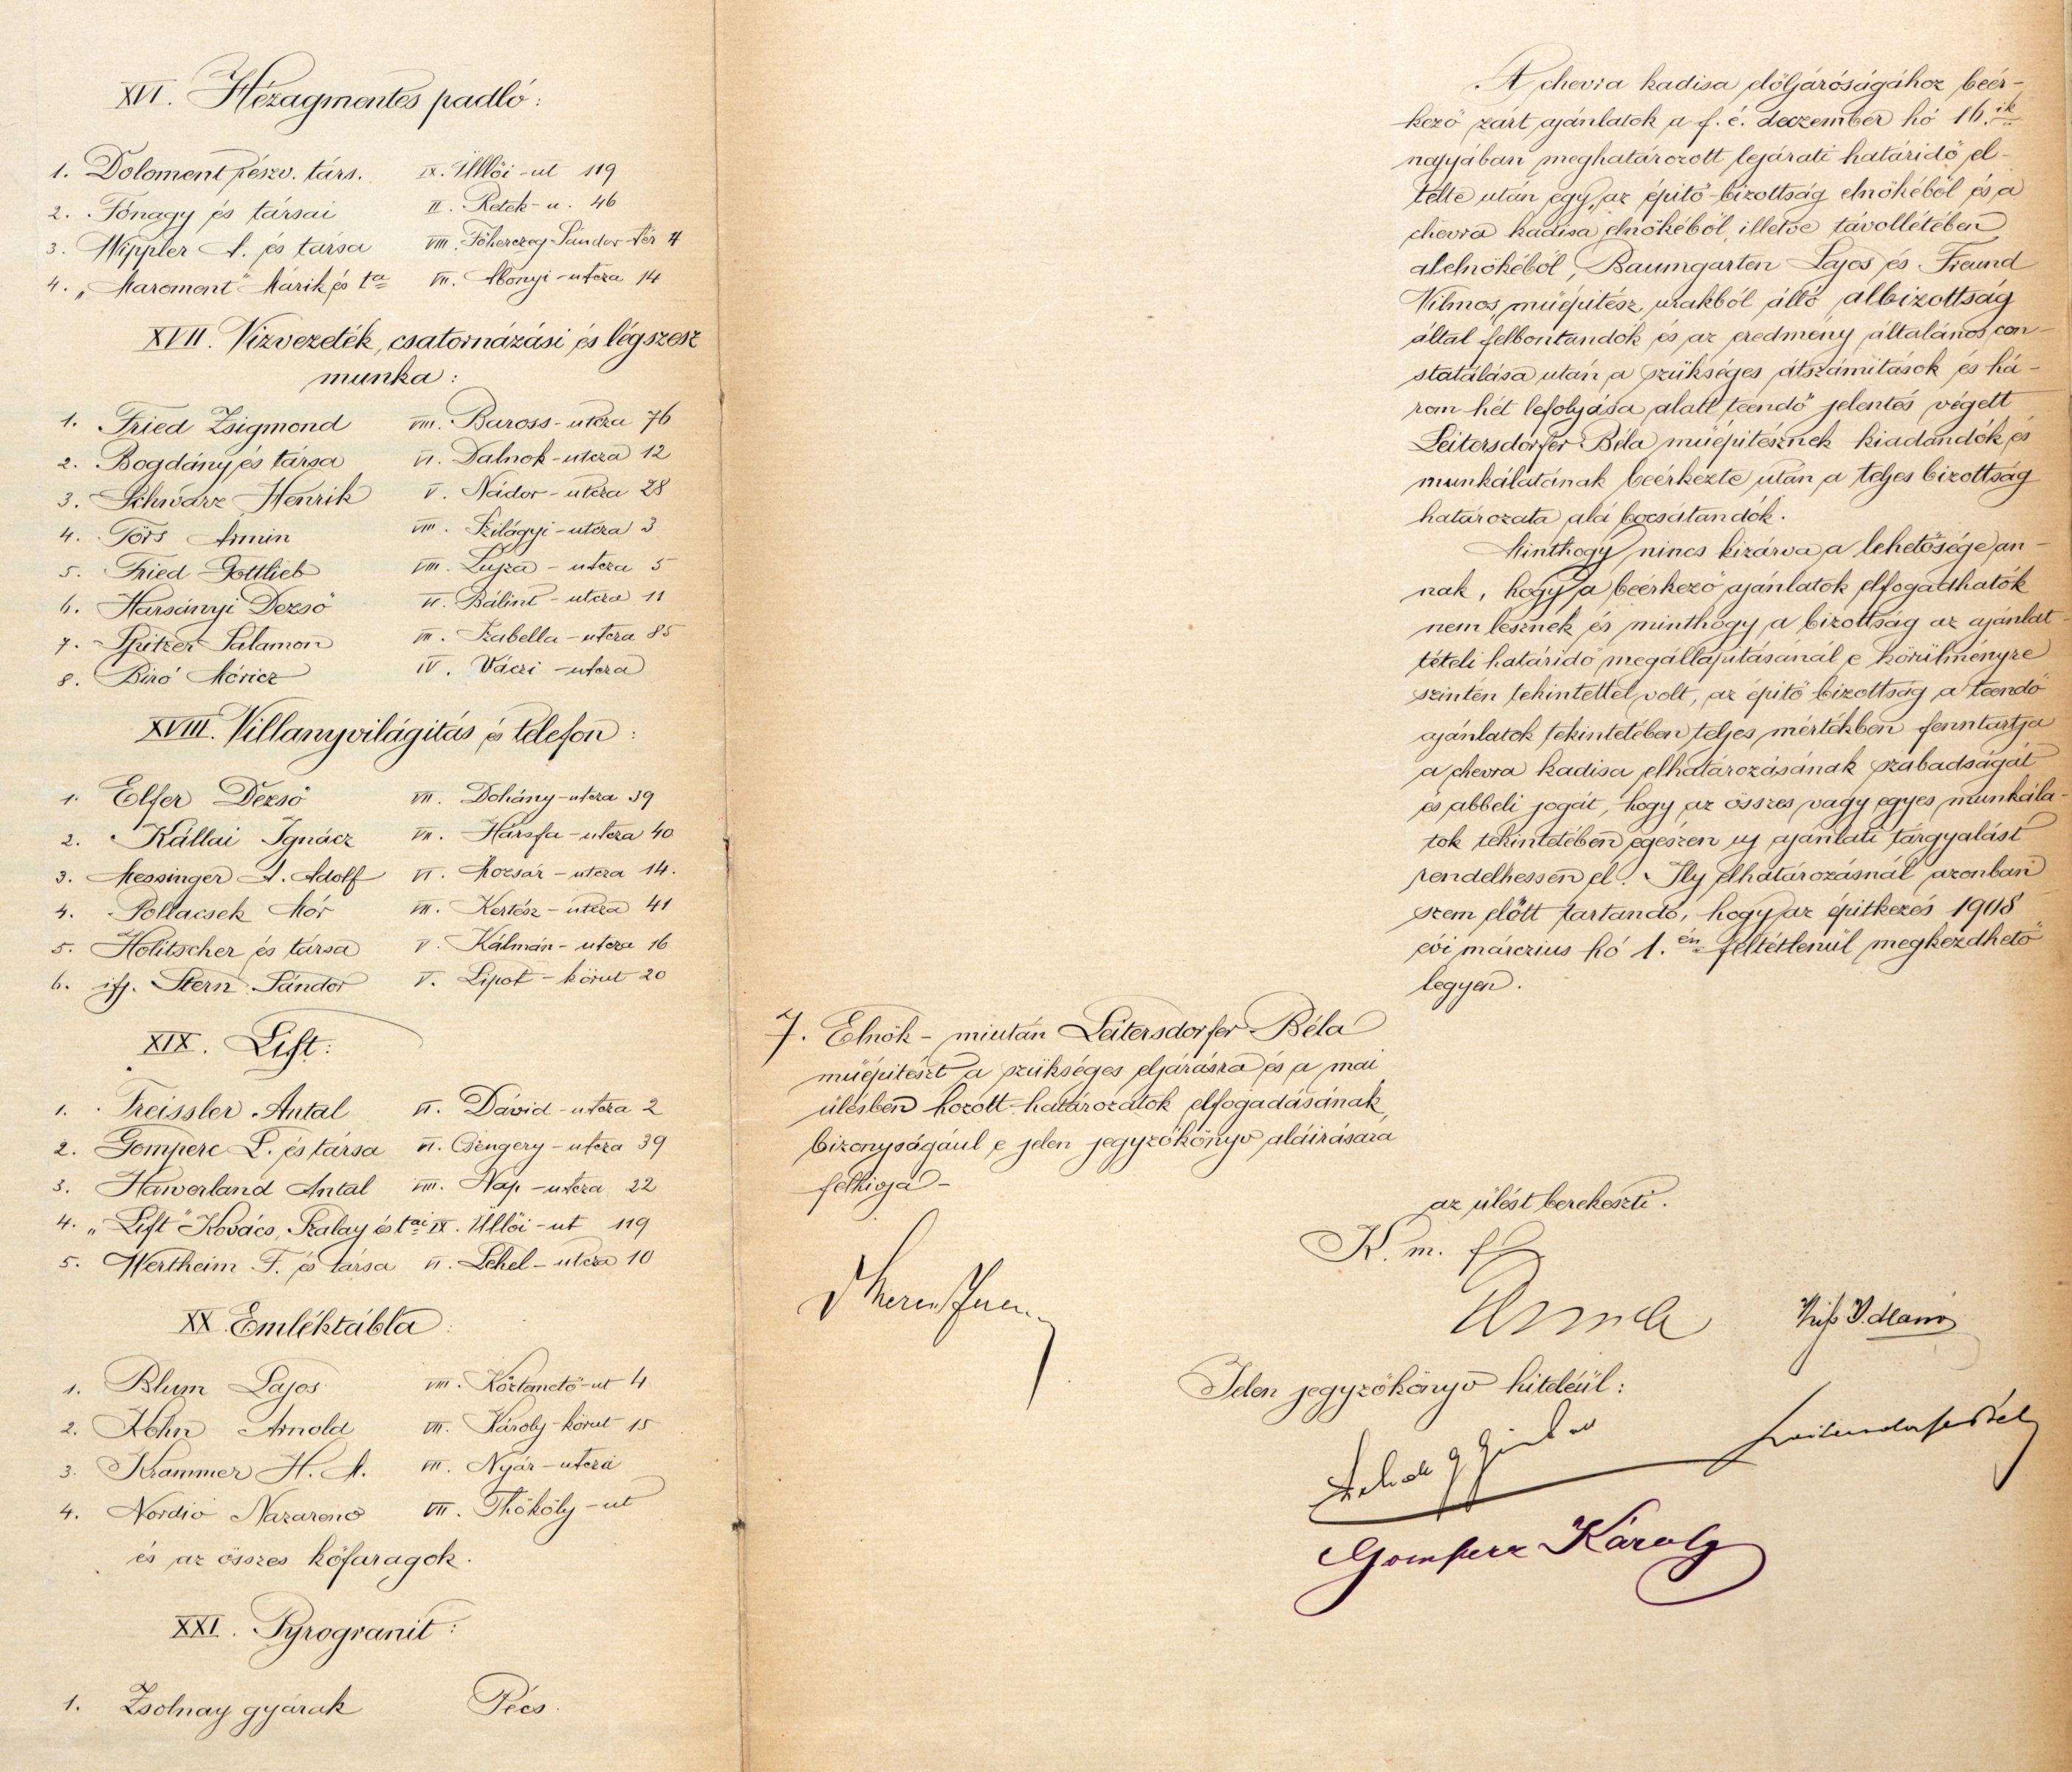 XVI. Hézagmentes padló:
1. Doloment részv. társ. IX. Üllői-ut 119
2. Fónagy és társai II. Retek-u. 46
3. Wippler A. és társa VIII. Főherczeg Sándor-tér 4
4. „Maroment" Márik és ta VII. Abonyi-utcza 14
XVII. Vizvezeték, csatornázási és légszesz
munka:
1. Fried Zsigmond VIII. Baross-utcza 76
2. Bogdány és társa VI. Dalnok-utcza 12
3. Schwarz Henrik V. Nádor-utcza 28
4. Törs Ármin VIII. Szilágyi-utcza 3
5. Fried Gottlieb VIII. Lujza-utcza 5
6. Harsányi Dezső VI. Bálint-utcza 11
7. Spitzer Salamon VII. Izabella-utcza 85
8. Biró Móricz IV. Váczi-utcza
XVIII. Villanyvilágitás és telefon:
1. Elfer Dezső VII. Dohány-utcza 39
2. Kállai Ignácz VII. Hársfa-utcza 40
3. Messinger A. Adolf VI. Mozsár-utcza 14.
4. Pollacsek Mór VII. Kertész-utcza 41
5. Holitscher és társa V. Kálmán-utcza 16
6. ifj. Stern Sándor V. Lipót-körut 20
XIX. Lift:
1. Freissler Antal VI. Dávid-utcza 2
2. Gomperc L. és társa VI. Csengery-utcza 39
3. Hawerland Antal VIII. Nap-utcza 22
4. „Lift" Kovács, Szalay és tai IX. Üllői-ut 119
5. Wertheim F. és társa VI. Lehel-utcza 10
XX. Emléktábla:
1. Blum Lajos VIII. Köztemető-ut 4
2. Kohn Arnold VII. Károly-körut 15
3. Krammer H. A. VII. Nyár-utcza
4. Nordio Nazareno VII. Thököly-ut
és az összes kőfaragok.
XXI. Pyrogranit:
1. Zsolnay gyárak Pécs.
A chevra kadisa elöljáróságához beér-
kező zárt ajánlatok a f. é. deczember hó 16.ik
napjában meghatározott lejárati határidő el-
telte után egy, az épitő-bizottság elnökéből és a
chevra kadisa elnökéből, illetve távollétében
alelnökéből, Baumgarten Lajos és Freund
Vilmos, müépitész urakból álló albizottság
által felbontandók és az eredmény általános con-
statálása után a szükséges átszámitások és há-
rom hét lefolyása alatt teendő jelentés végett
Leitersdorfer Béla müépitésznek kiadandók és
munkálatának beérkezte után a teljes bizottság
határozata alá bocsátandók.
Minthogy nincs kizárva a lehetősége an-
nak, hogy a beérkező ajánlatok elfogadhatók
nem lesznek és minthogy a bizottság az ajánlat-
tételi határidő megállapitásánál e körülményre
szintén tekintettel volt, az épitő bizottság a teendő
ajánlatok tekintetében teljes mértékben fenntartja
a chevra kadisa elhatározásának szabadságát
és abbeli jogát, hogy az összes vagy egyes munkála-
tok tekintetében egészen uj ajánlati tárgyalást
rendelhessen el. Ily elhatározásnál azonban
szem előtt tartandó, hogy az épitkezés 1908
évi márczius hó 1.én feltétlenül megkezdhető
legyen.
7. Elnök - miután Leitersdorfer Béla
müépitészt a szükséges eljárásra és a mai
ülésben hozott határozatok elfogadásának
bizonyságául e jelen jegyzőkönyv aláirására
felhivja -
az ülést berekeszti.
K. m. f.
Jelen jegyzőkönyv hiteléül:
Leitersdorfer Béla
Gomperz Károly